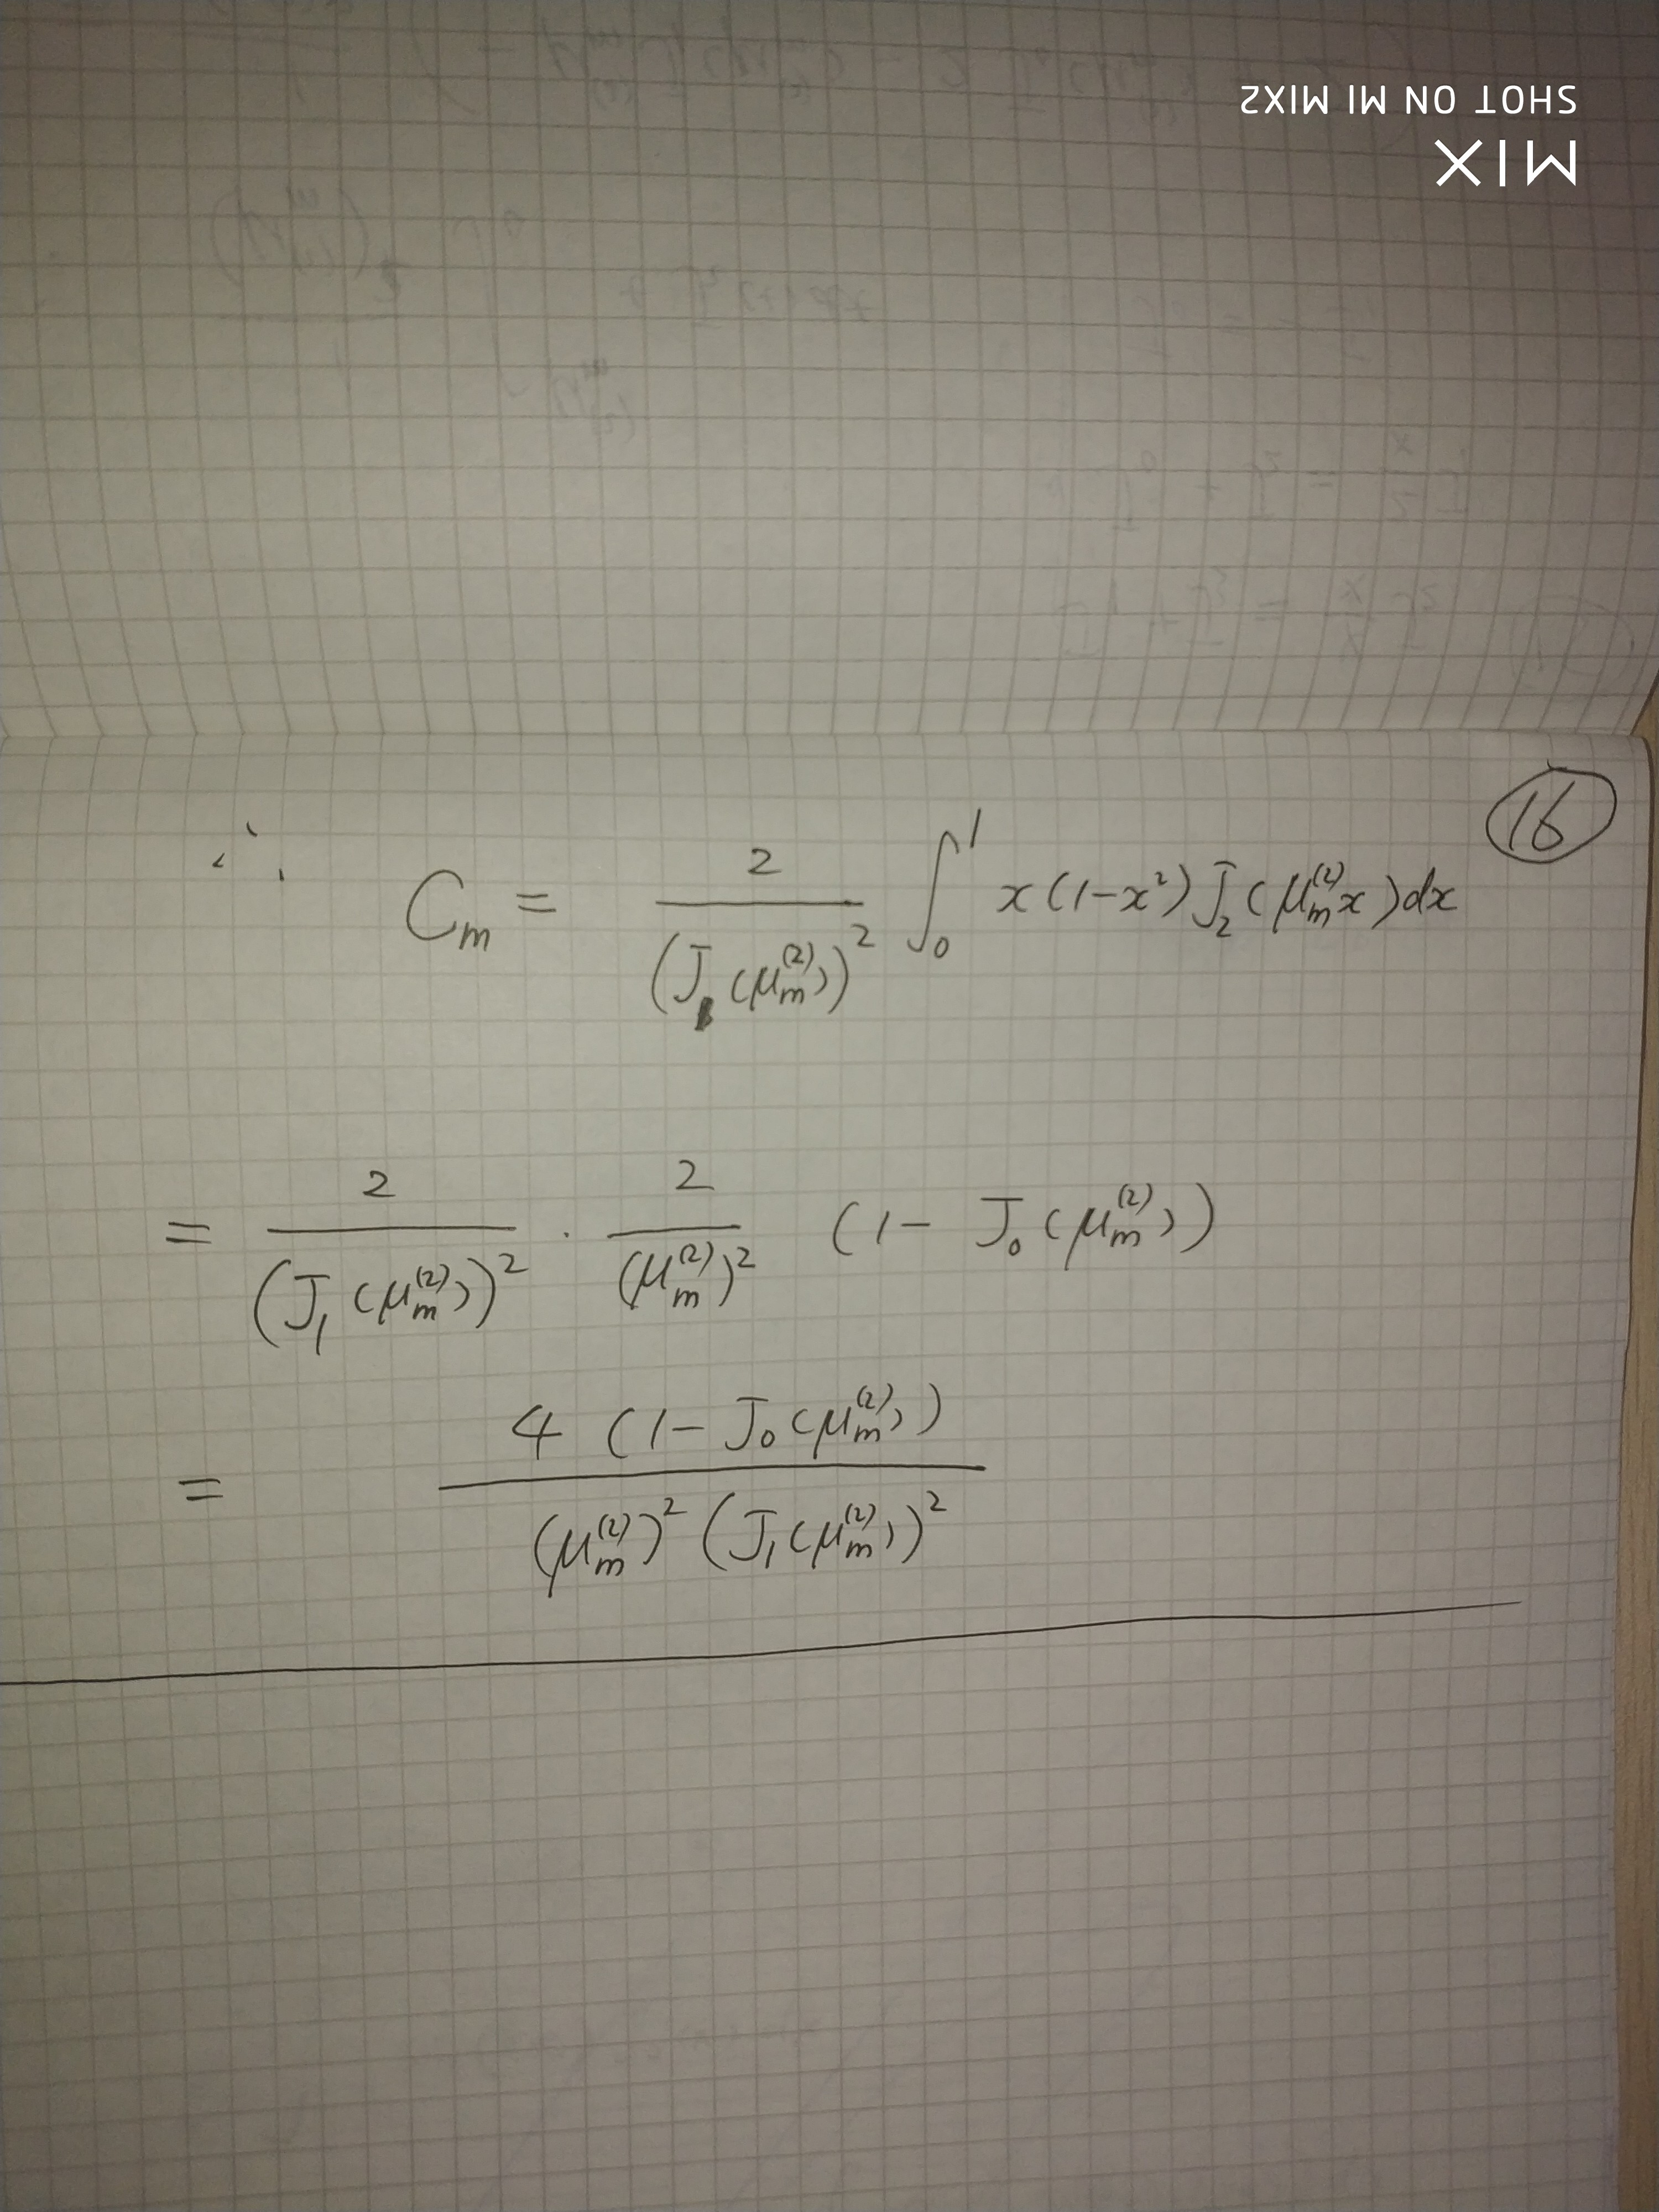 SHOT ON MI MIX2
MIX
⑯
∴ C_m = \frac{2}{(J_1(μ_m^{(2)}))^2} \int_0^1 x(1-x^2) J_2(μ_m^{(2)}x)dx
= \frac{2}{(J_1(μ_m^{(2)}))^2} · \frac{2}{(μ_m^{(2)})^2} (1 - J_0(μ_m^{(2)}))
= \frac{4(1-J_0(μ_m^{(2)}))}{(μ_m^{(2)})^2 (J_1(μ_m^{(2)}))^2}